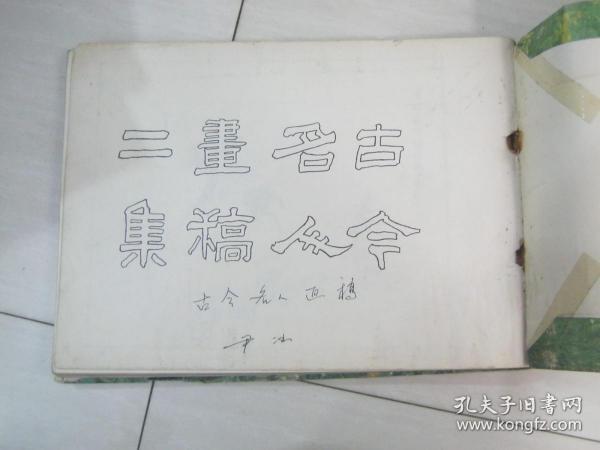 古今
名人
畫稿
二集
古今名人画稿
尹
孔夫子旧书网
www.kongfz.com